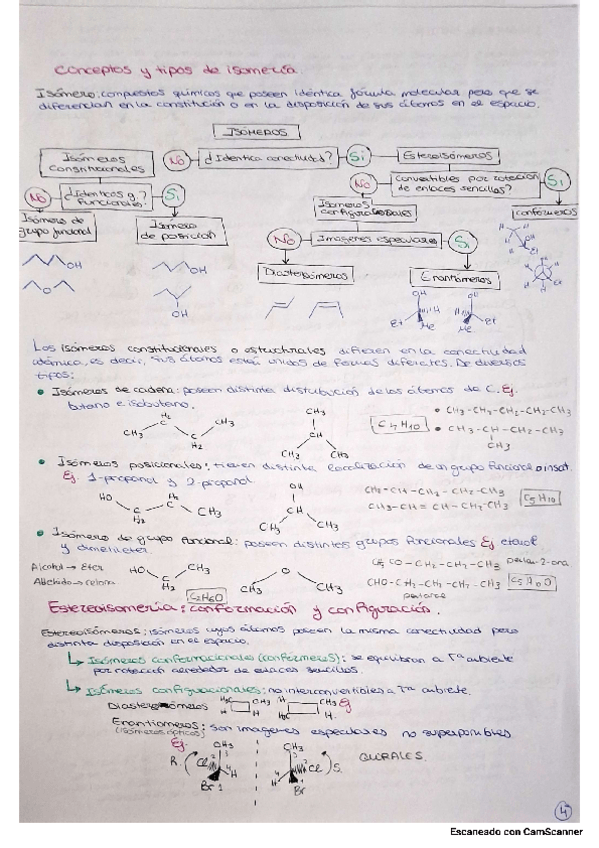 Conceptos y tipos de isomería.
Isómero: compuestos químicos que poseen idéntica fórmula molecular pero que se
diferencian en la constitución o en la disposición de sus átomos en el espacio.
ISÓMEROS
Isómeros constitucionales
No
¿Identica conectividad?
Si
Estereoisómeros
No
¿Identicos g. funcionales?
Si
No
Convertibles por rotación de enlaces sencillos?
Si
Isómero de grupo funcional
Isómero de posición
Isómeros configuracionales
Confórmeros
No
Imágenes especulares
Si
Diasterisómeros
Enantiómeros
OH
OH
O
OH
OH
H
Et
Me
OH
H
Me
Et
Los isómeros constitucionales o estructurales difieren en la conectividad
atómica, es decir, sus átomos están unidos de formas diferentes. De diversos
tipos:
• Isómeros de cadena: poseen distinta distribución de los átomos de C. Ej.
butano e isobutano.
CH3 C H2 C H2 CH3
CH3 CH CH3 CH3
• CH3-CH2-CH2-CH2-CH3
• CH3-CH-CH2-CH3
CH3
• Isómeros posicionales: tienen distinta localización de un grupo funcional o insat.
Ej. 1-propanol y 2-propanol.
HO C H2 C H2 CH3
OH CH CH3 CH3
C5H10
• Isómero de grupo funcional: poseen distintos grupos funcionales Ej etanol
y dimetileter.
Alcohol → Eter
Aldehido → cetona
HO C H2 CH3
C2H6O
CH3 O CH3
CHO-CH2-CH2-CH2-CH3
Estereoisomería: conformación y configuración.
Estereoisómeros: isómeros cuyos átomos poseen la misma conectividad pero
distinta disposición en el espacio.
↳ Isómeros conformacionales (confórmeros): se equilibran a Tª ambiente
por rotación alrededor de enlaces sencillos.
↳ Isómeros configuracionales: no interconvertibles a Tª ambiente.
Diastereómeros
H3C H CH3 H
H3C H CH3 H
Ej
Enantiómeros: son imagenes especulares no superponibles
(isómeros ópticos)
Ej.
R.
CH3 3
Cl 2
4 H
Br 1
CH3 3
2 Cl
4 H
Br
S.
QUIRALES.
4
Escaneado con CamScanner